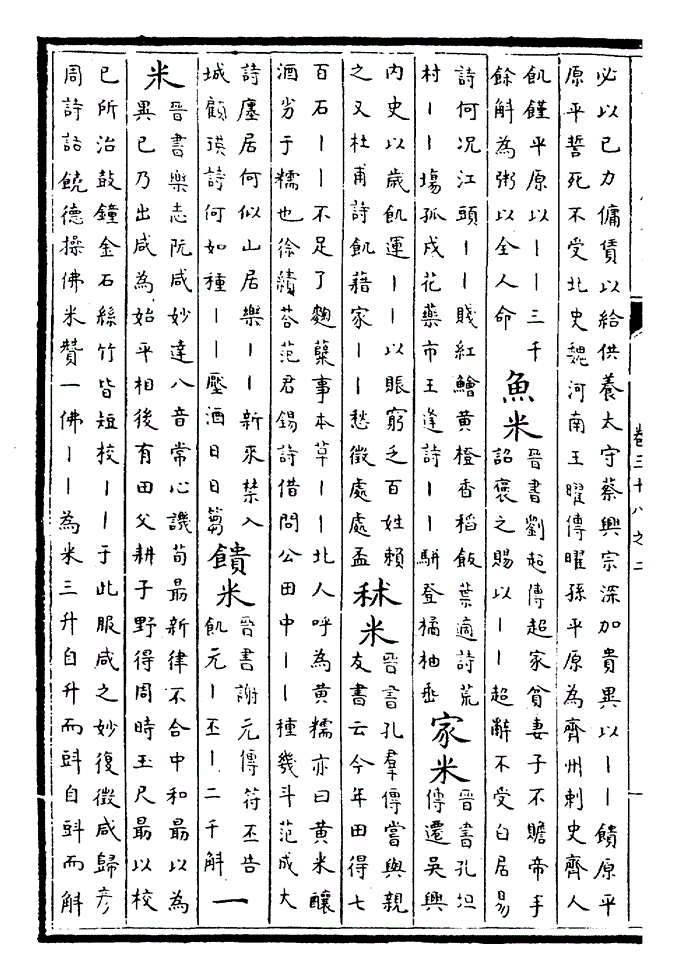 必以已力傭賃以給供養太守蔡興宗深加貴異以丨丨饋原平
原平誓死不受北史魏河南王曜傳曜孫平原為齊州刺史齊人
飢饉平原以丨丨三千
餘斛為粥以全人命
魚米
晉書劉超傳超家貧妻子不贍帝手
詔褒之賜以丨丨超辭不受白居易
詩何况江頭丨丨賤紅鱠黄橙香稻飯葉適詩荒
村丨丨塲孤戍花藥市王逢詩丨丨駢登橘柚垂
家米
晉書孔坦
傳遷吳興
内史以歲飢運丨丨以賬窮乏百姓賴
之又杜甫詩飢藉家丨丨愁徵處處盃
秫米
晉書孔羣傳嘗與親
友書云今年田得七
百石丨丨不足了麴蘖事本草丨丨北人呼為黄糯亦曰黄米釀
酒劣于糯也徐績荅范君錫詩借問公田中丨丨種幾斗范成大
詩廛居何似山居樂丨丨新來禁入
城顧瑛詩何如種丨丨壓酒日日篘
饋米
晉書謝元傳苻丕告
飢元丨丕丨二千斛
一
米
晉書樂志阮咸妙達八音常心譏荀朂新律不合中和朂以為
異已乃出咸為始平相後有田父耕于野得周時玉尺朂以校
已所治鼓鐘金石絲竹皆短校丨丨于此服咸之妙復徵咸歸彦
周詩話饒德操佛米贊一佛丨丨為米三升自升而㪷自㪷而斛
卷三十八之二